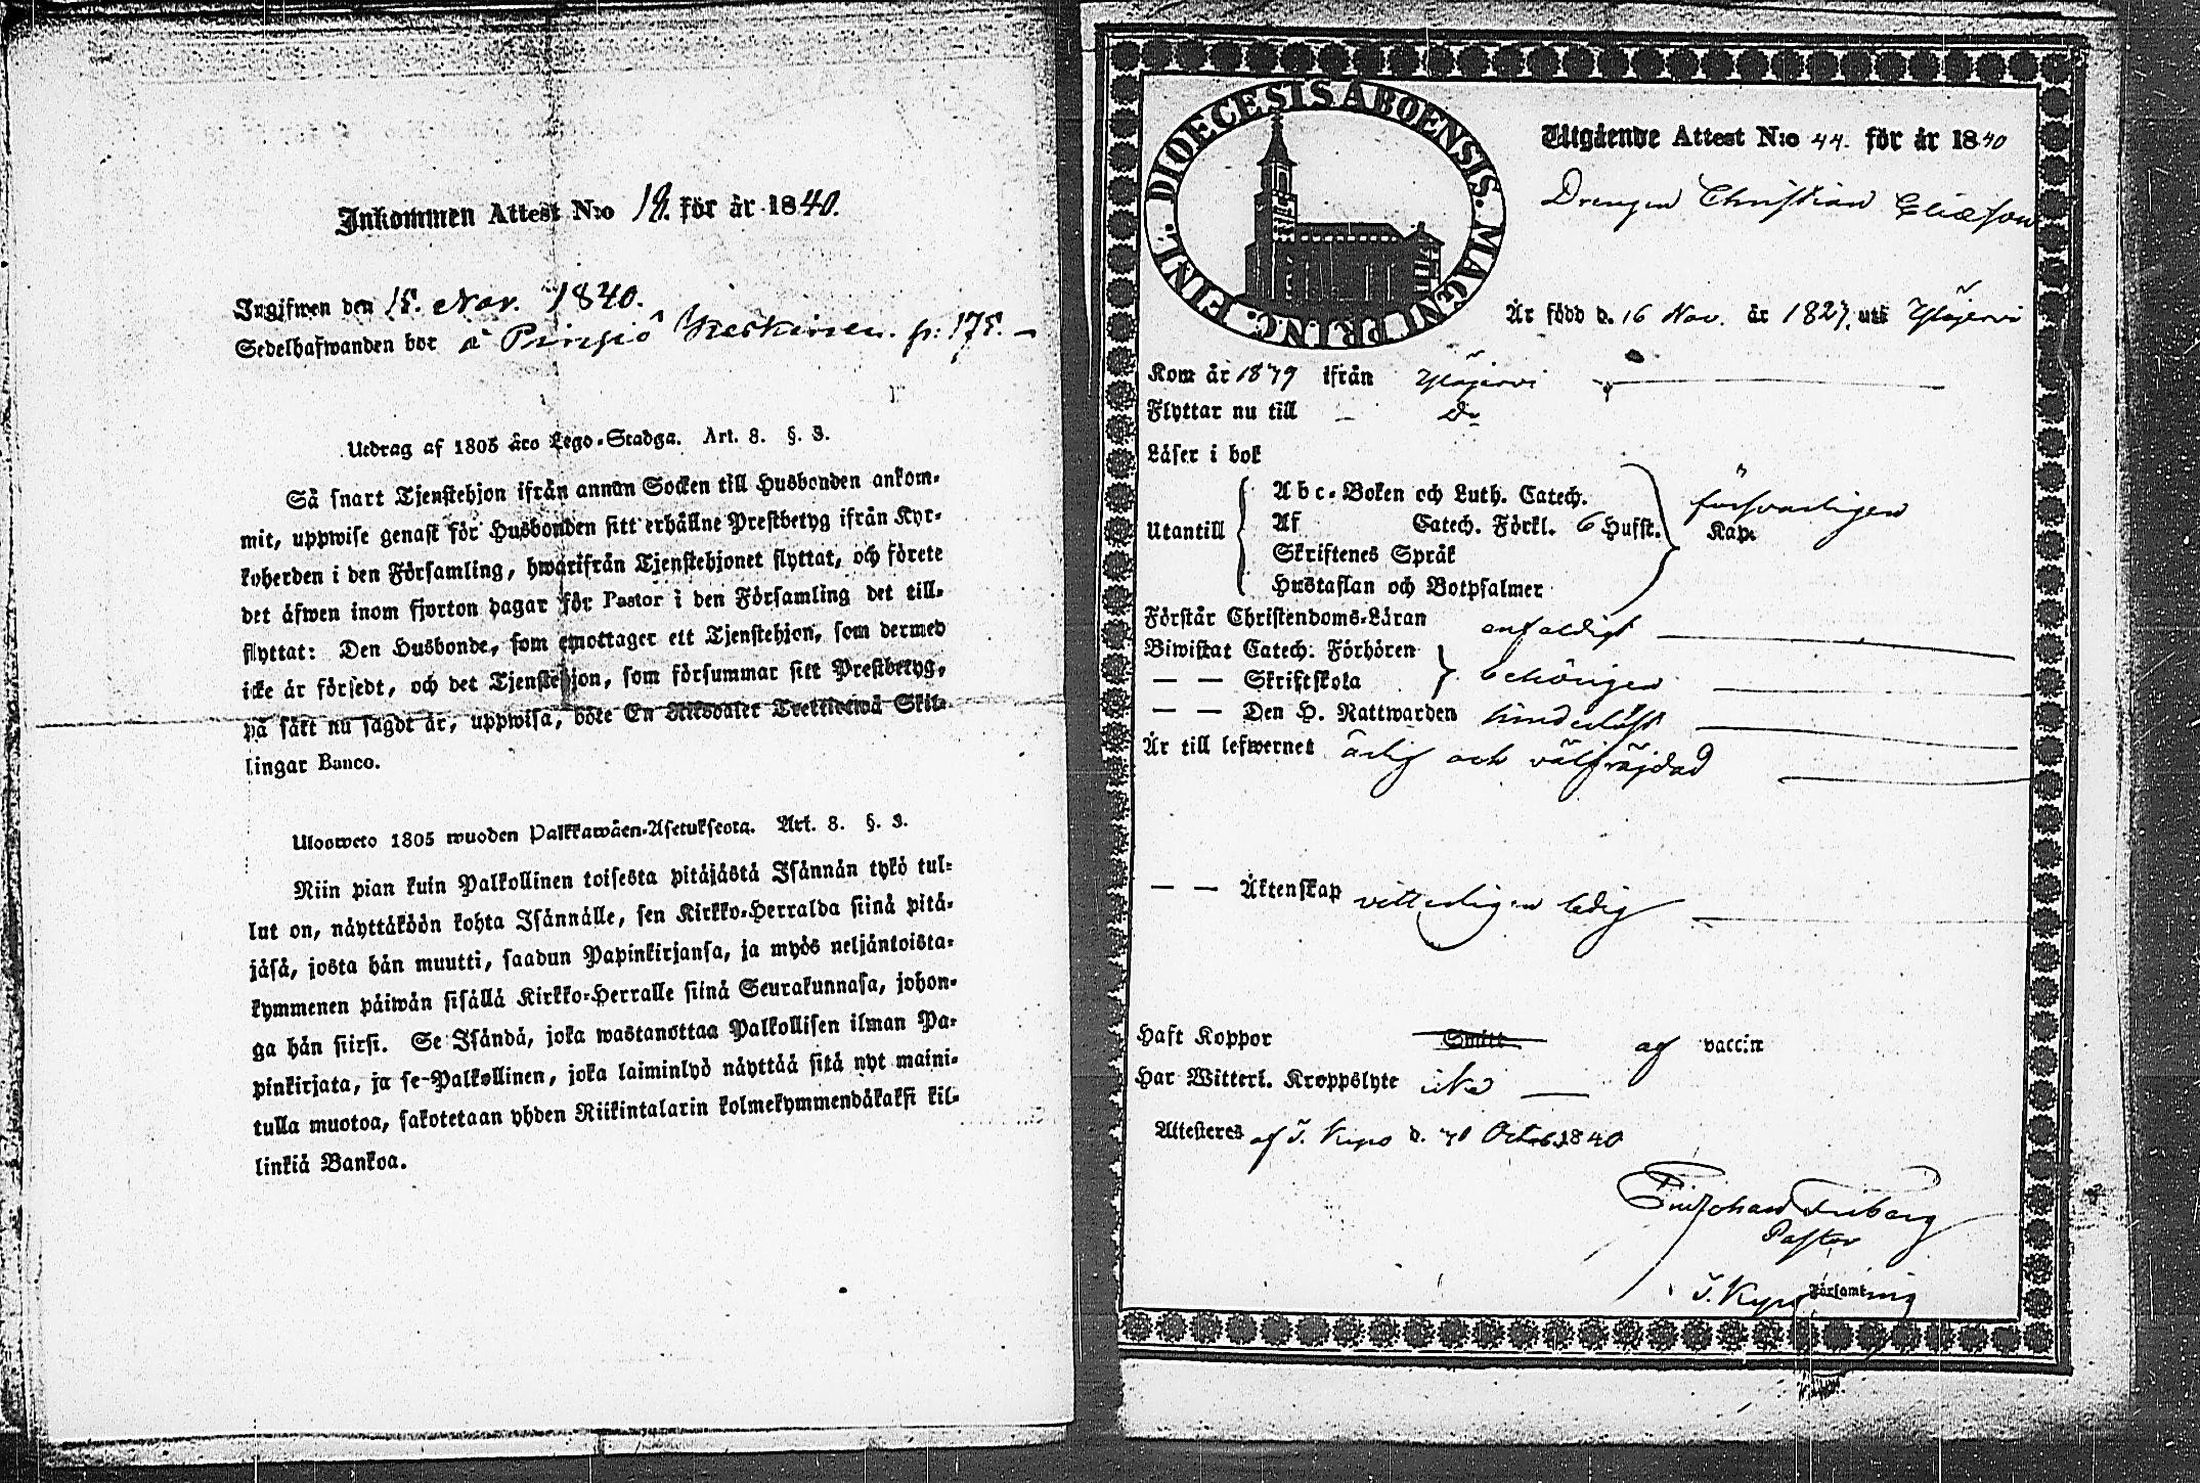 Inkommen Attest N:o 19. för år 1840.
Ingifwen den 15. Nov. 1840.
Sedelhafwanden bor å Pinsiö Heiskainen. p. 175. —
Utdrag af 1805 års Lego-Stadga. Art. 8. §. 3.
Så snart Tjenstehjon ifrån annan Socken till Husbonden ankom-
mit, uppwise genast för Husbonden sitt erhållne Prestbetyg ifrån Kyr-
koherden i den Församling, hwarifrån Tjenstehjonet flyttat, och förete
det äfwen inom fjorton dagar för Pastor i den Församling det till-
flyttat: Den Husbonde, som emottager ett Tjenstehjon, som dermed
icke är försedt, och det Tjenstehjon, som försummar sitt Prestbetyg,
på sätt nu sagdt är, uppwisa, böte En Riksdaler Trettiotwå Skil-
lingar Banco.
Uloosweto 1805 wuoden Palkkawäen-Asetuksesta. Art. 8. §. 3.
Niin pian kuin Palkollinen toisesta pitäjästä Isännän tykö tul-
lut on, näyttäköön kohta Isännälle, sen Kirkko-Herralda siinä pitä-
jäsä, josta hän muutti, saadun Papinkirjansa, ja myös neljäntoista-
kymmenen päiwän sisällä Kirkko-Herralle siinä Seurakunnasa, johon-
ga hän siirsi. Se Isändä, joka wastanottaa Palkollisen ilman Pa-
pinkirjata, ja se Palkollinen, joka laiminlyö näyttää sitä nyt maini-
tulla muotoa, sakotetaan yhden Riikintalarin kolmekymmendäkaksi kil-
linkiä Bankoa.
DIOECESIS ABOENSIS. MAGNI PRINC. FINL.
Utgående Attest N:o 44. för år 1840
Drengen Christian Eliæson
Är född d. 16 Nov. år 1827. uti Ylöjervi
Kom år 1879 ifrån Ylöjervi
Flyttar nu till — Do
Läser i bok
Abc-Boken och Luth. Catech. försvarligen
Utantill Af Catech. Förkl. 6 Hufst. Kap.
Skriftenes Språk
Hustaflan och Botpsalmer
Förstår Christendoms-Läran enfaldigt
Biwistat Catech. Förhören
— — Skriftskola behörigen
— — Den H. Nattwarden hinderlöst
Är till lefwernet ärlig och välfräjdad
— — Äktenskap vitterligen ledig
Haft Koppor Smitt af vaccin
Har Witterl. Kroppslyte icke
Attesteras af T. Kyro d. Octob. 1840
Friberg
Pastor
T. Kyro Församling